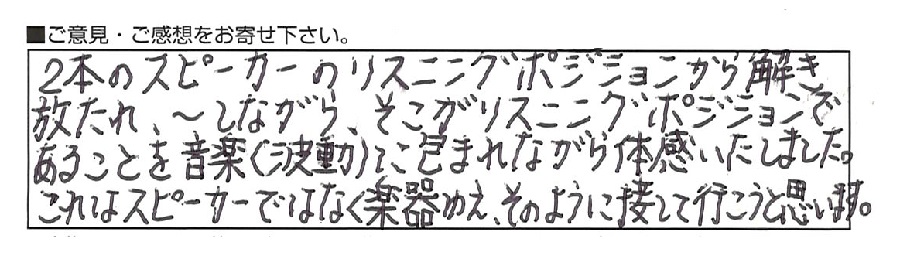 ■ご意見・ご感想をお寄せ下さい。
2本のスピーカーのリスニングポジションから解き
放たれ、〜しながら、そこがリスニングポジションで
あることを音楽(波動)に包まれながら体感いたしました。
これはスピーカーではなく楽器ゆえ、そのように接して行こうと思います。